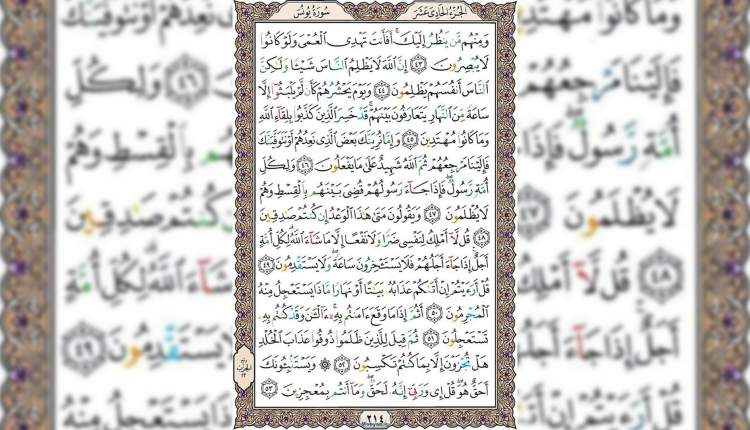 الجزء الحادي عشر
سورة يونس
وَمِنْهُم مَّن يَنظُرُ إِلَيْكَ ۚ أَفَأَنتَ تَهْدِى الْعُمْىَ وَلَوْ كَانُوا
لَا يُبْصِرُونَ ﴿٤٣﴾ إِنَّ اللَّهَ لَا يَظْلِمُ النَّاسَ شَيْئًا وَلَٰكِنَّ
النَّاسَ أَنفُسَهُمْ يَظْلِمُونَ ﴿٤٤﴾ وَيَوْمَ يَحْشُرُهُمْ كَأَن لَّمْ يَلْبَثُوا إِلَّا
سَاعَةً مِّنَ النَّهَارِ يَتَعَارَفُونَ بَيْنَهُمْ ۚ قَدْ خَسِرَ الَّذِينَ كَذَّبُوا بِلِقَاءِ اللَّهِ
وَمَا كَانُوا مُهْتَدِينَ ﴿٤٥﴾ وَإِمَّا نُرِيَنَّكَ بَعْضَ الَّذِى نَعِدُهُمْ أَوْ نَتَوَفَّيَنَّكَ
فَإِلَيْنَا مَرْجِعُهُمْ ثُمَّ اللَّهُ شَهِيدٌ عَلَىٰ مَا يَفْعَلُونَ ﴿٤٦﴾ وَلِكُلِّ
أُمَّةٍ رَّسُولٌ ۖ فَإِذَا جَاءَ رَسُولُهُمْ قُضِىَ بَيْنَهُم بِالْقِسْطِ وَهُمْ
لَا يُظْلَمُونَ ﴿٤٧﴾ وَيَقُولُونَ مَتَىٰ هَٰذَا الْوَعْدُ إِن كُنتُمْ صَادِقِينَ
﴿٤٨﴾ قُل لَّا أَمْلِكُ لِنَفْسِى ضَرًّا وَلَا نَفْعًا إِلَّا مَا شَاءَ اللَّهُ ۗ لِكُلِّ أُمَّةٍ
أَجَلٌ ۚ إِذَا جَاءَ أَجَلُهُمْ فَلَا يَسْتَأْخِرُونَ سَاعَةً ۖ وَلَا يَسْتَقْدِمُونَ ﴿٤٩﴾
قُلْ أَرَأَيْتُمْ إِنْ أَتَاكُمْ عَذَابُهُ بَيَاتًا أَوْ نَهَارًا مَّاذَا يَسْتَعْجِلُ مِنْهُ
الْمُجْرِمُونَ ﴿٥٠﴾ أَثُمَّ إِذَا مَا وَقَعَ آمَنتُم بِهِ ۚ آلْآنَ وَقَدْ كُنتُم بِهِ
تَسْتَعْجِلُونَ ﴿٥١﴾ ثُمَّ قِيلَ لِلَّذِينَ ظَلَمُوا ذُوقُوا عَذَابَ الْخُلْدِ
هَلْ تُجْزَوْنَ إِلَّا بِمَا كُنتُمْ تَكْسِبُونَ ﴿٥٢﴾ ۞ وَيَسْتَنبِئُونَكَ
أَحَقٌّ هُوَ ۖ قُلْ إِى وَرَبِّى إِنَّهُ لَحَقٌّ ۖ وَمَا أَنتُم بِمُعْجِزِينَ ﴿٥٣﴾
٢١٤